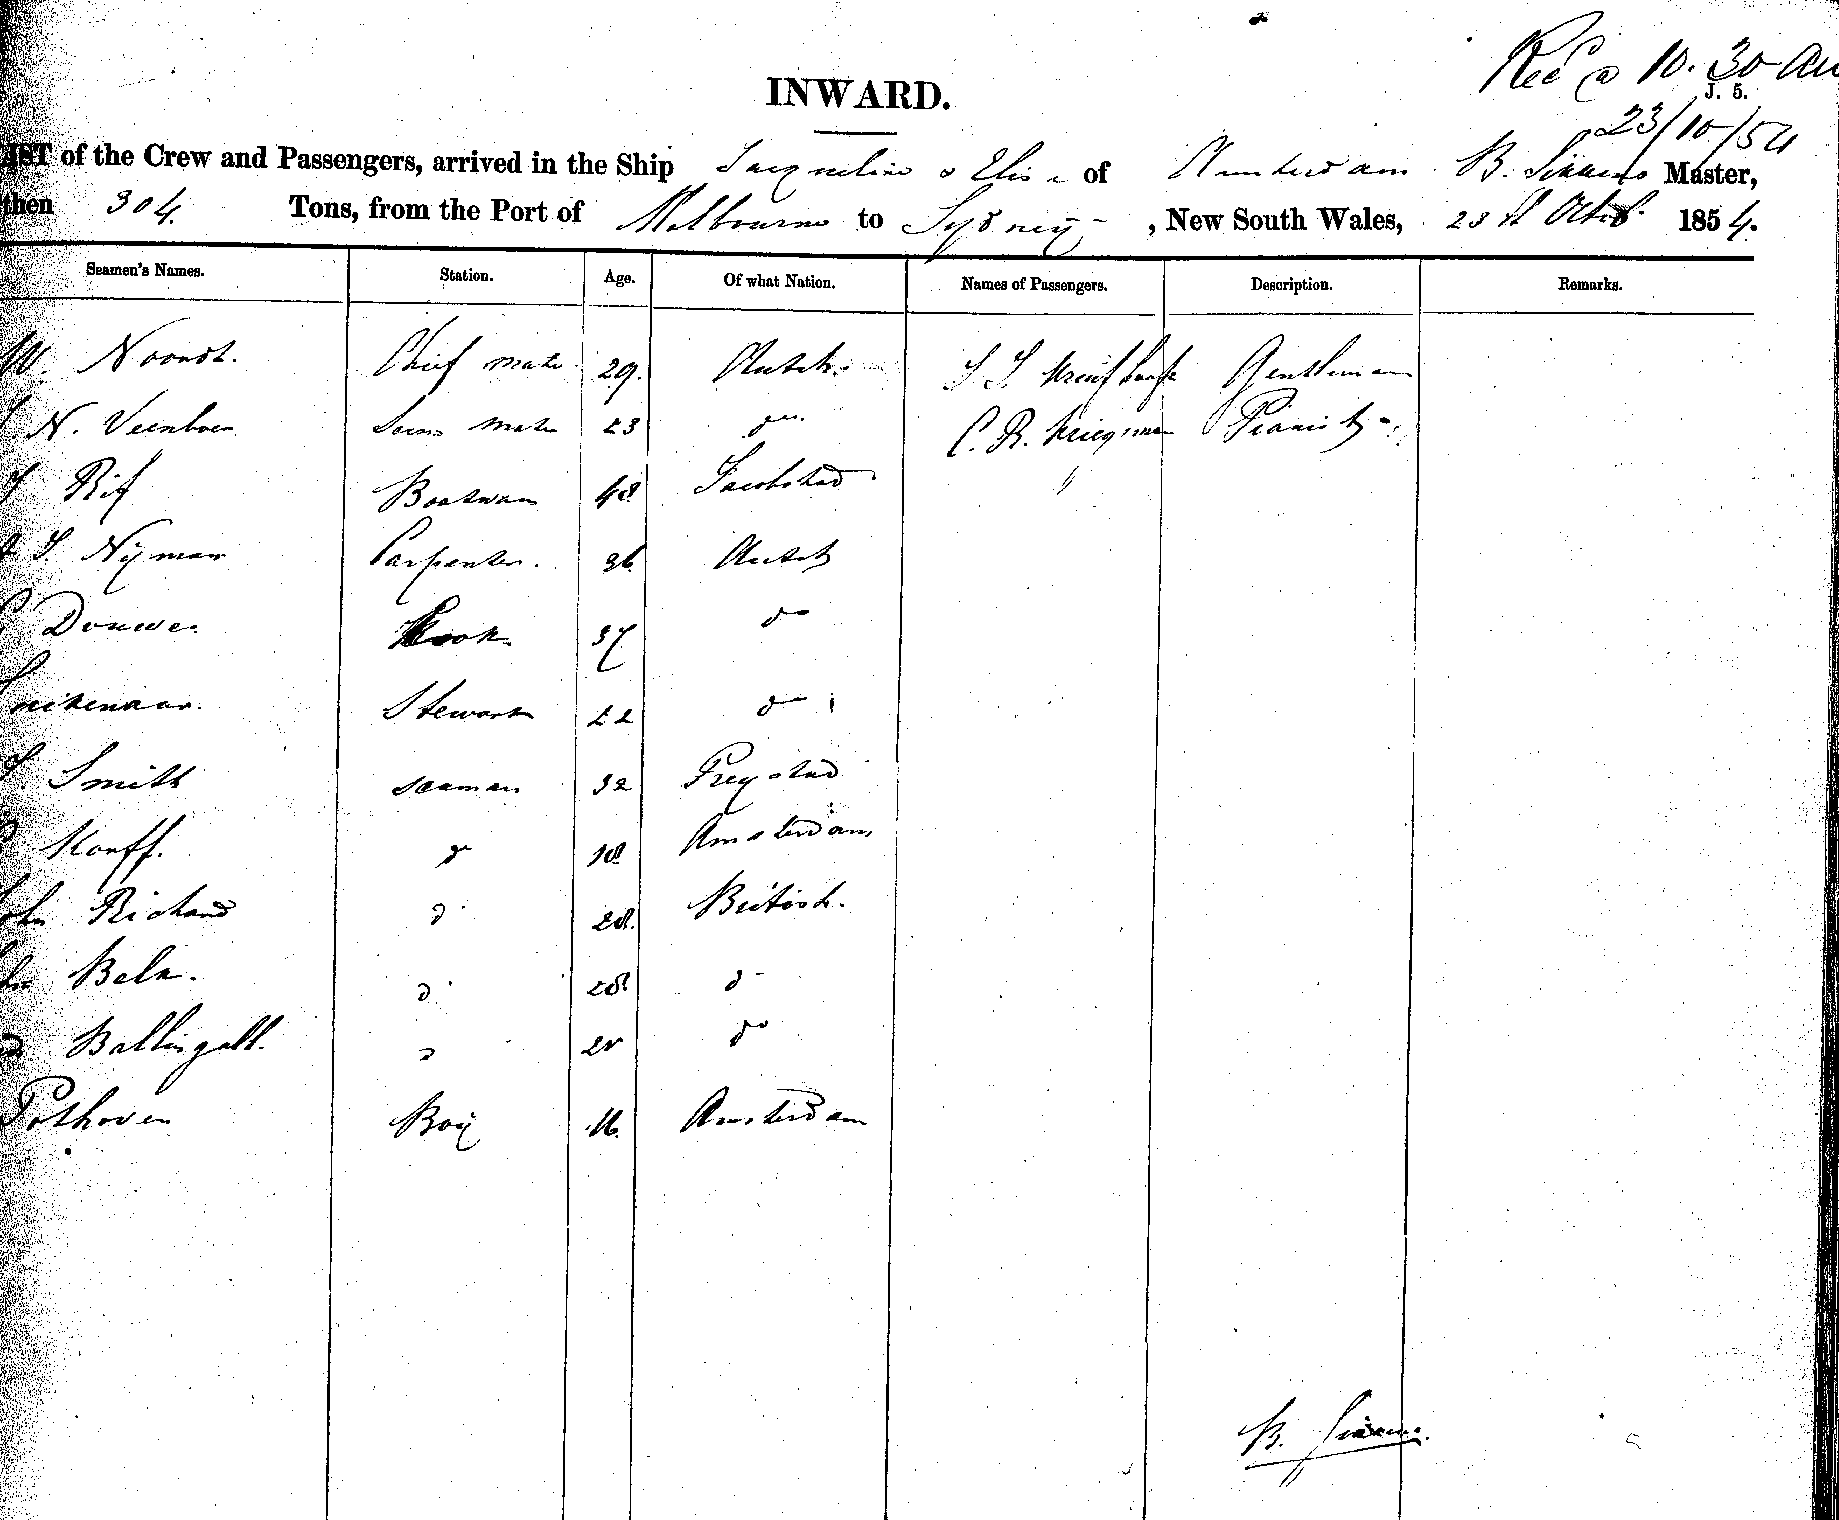 Rec @ 10.30 AM
J. 5.
23/10/54
INWARD.
LIST of the Crew and Passengers, arrived in the Ship Jacqueline & Elise of Amsterdam B. Sikkens Master,
then 304. Tons, from the Port of Melbourne to Sydney, New South Wales, 23d Octob. 1854.
Seamen's Names. Station. Age. Of what Nation. Names of Passengers. Description. Remarks.
W. Noordt. Chief mate 29. Dutch Gentleman
N. Veenboer Mate 23 do C. R. Pianist
Rif Boatswain 48 Jacobstad
Nijman Carpenter. 36 Dutch
Douwe Kook 37 do
Stewart 22 do
Smith seaman 32 Freystad
Korff. do 18 Amsterdam
Richard d 28. British.
Bela. d 28 d
Ballingall. d do
Pothoven Boy 16. Amsterdam
B. Sikkens.